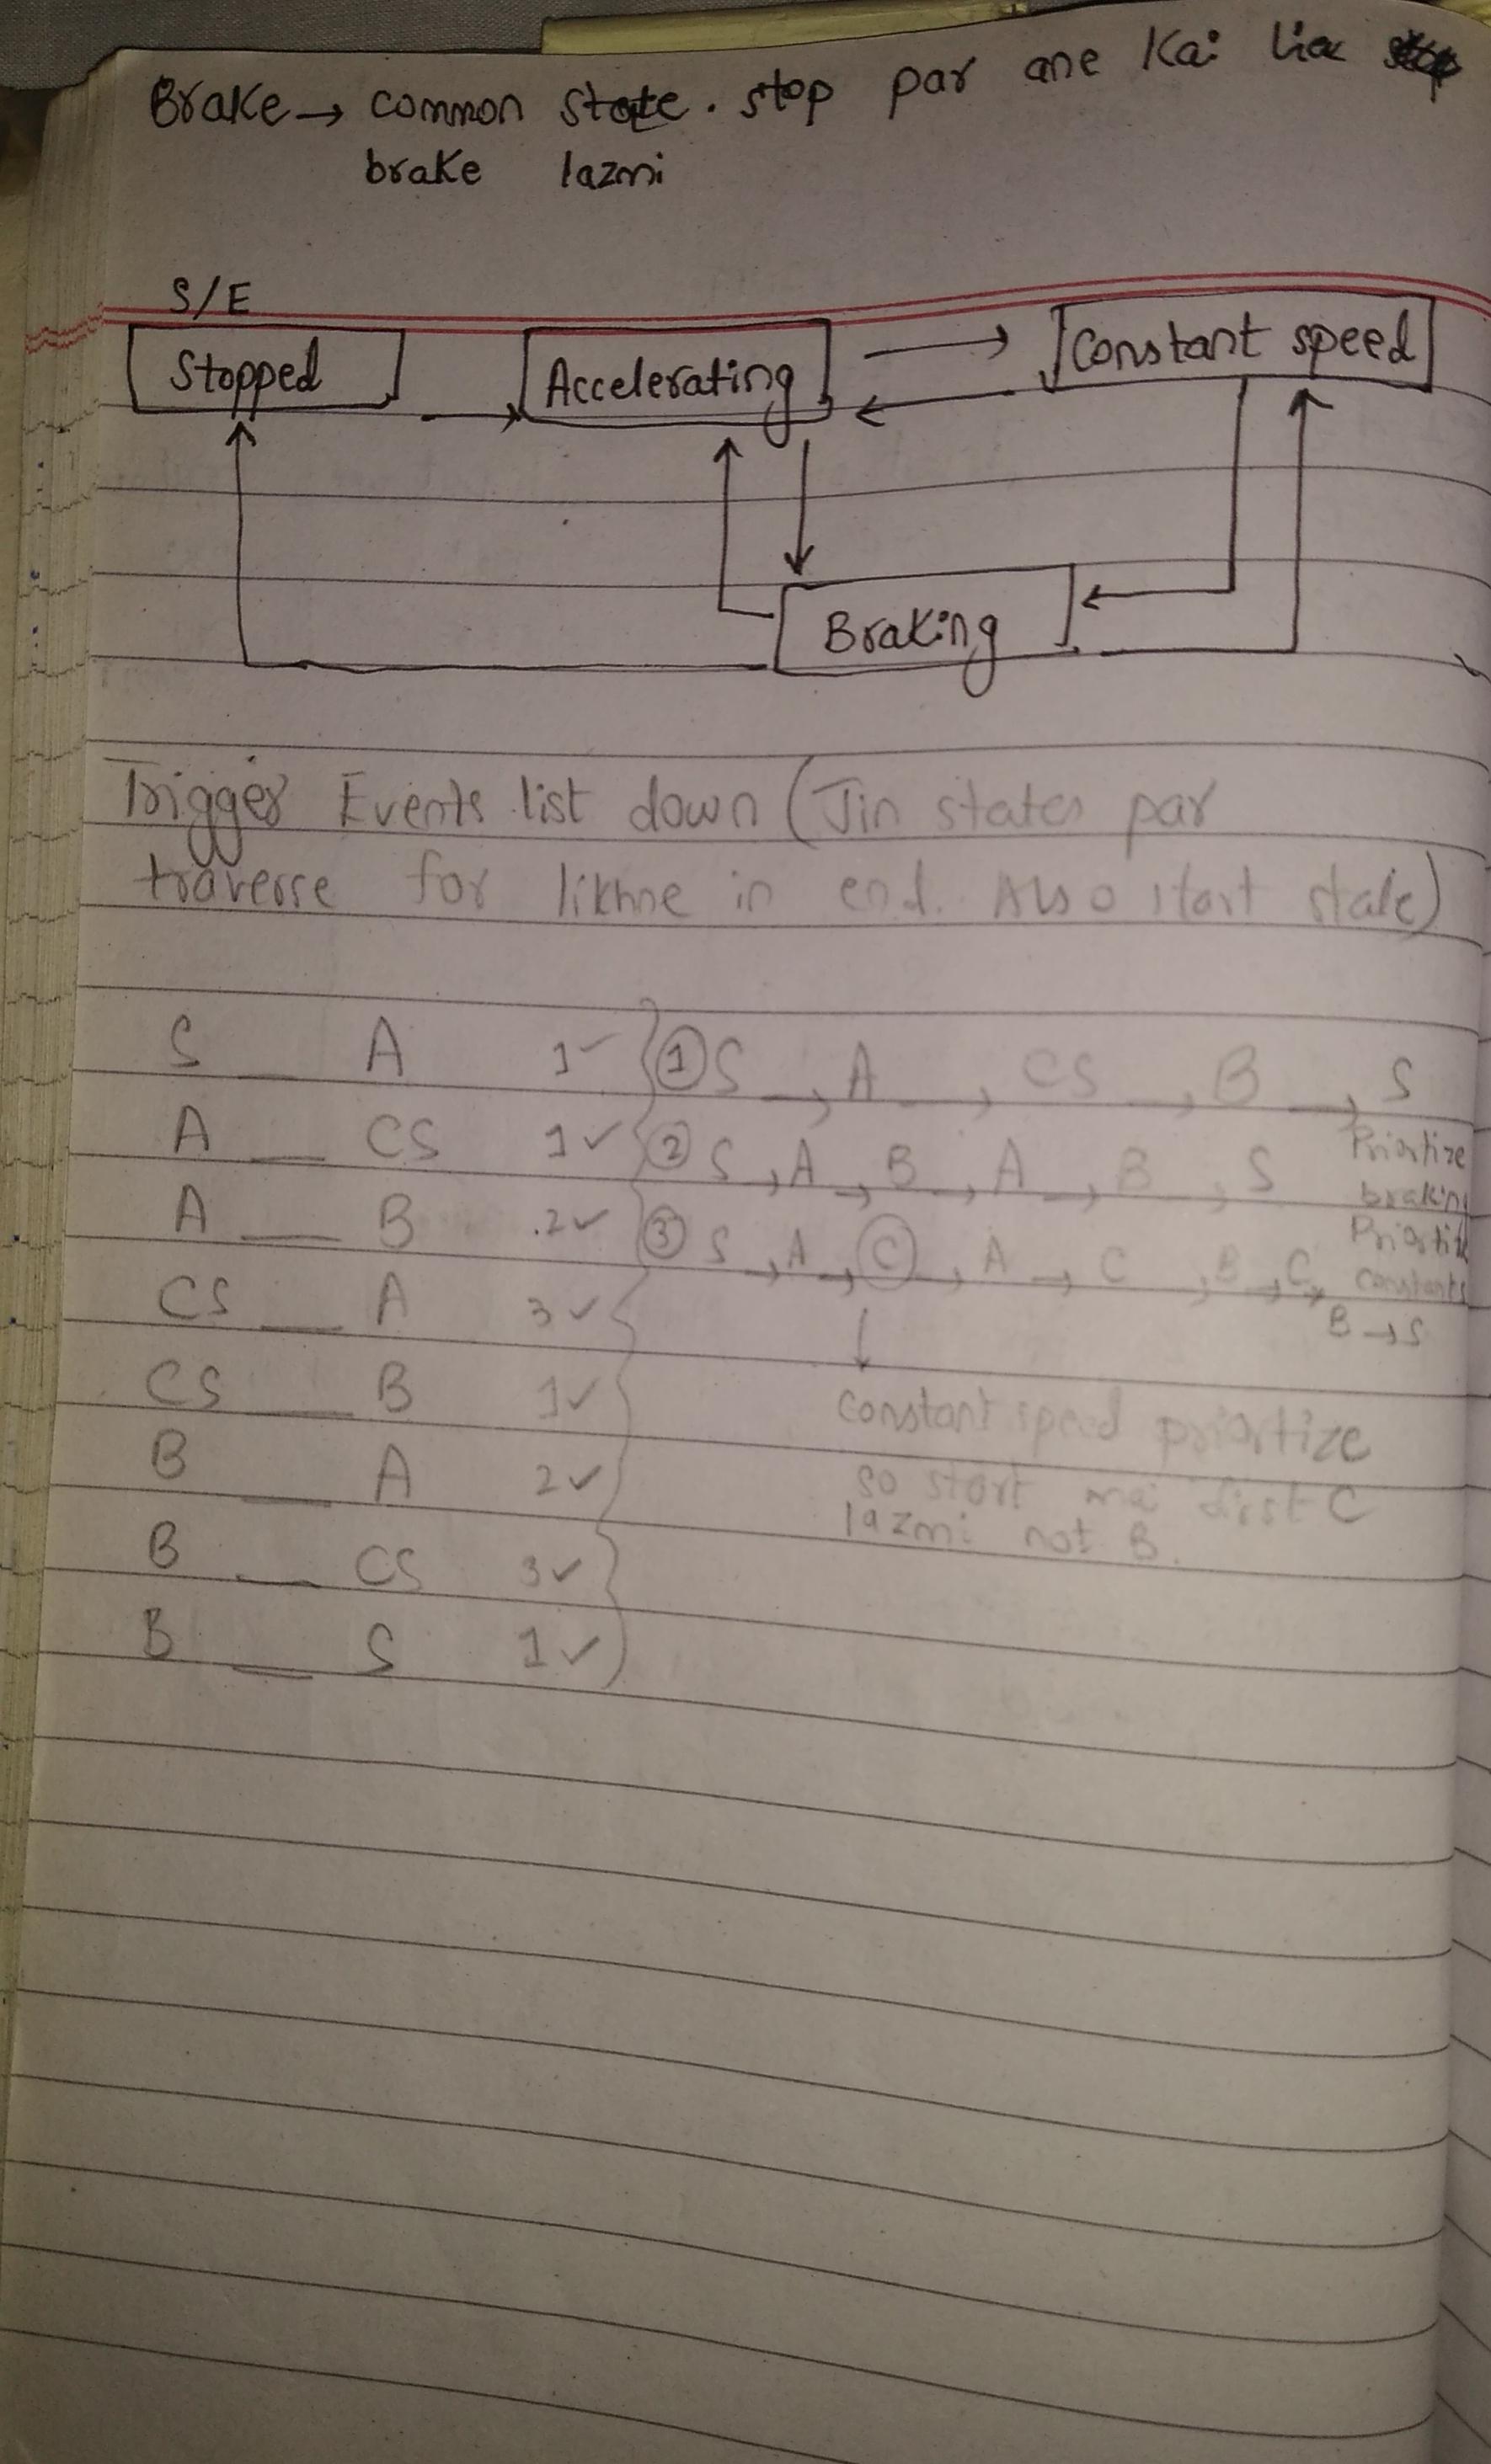 Brake → common state. stop par ane Kai lie
brake lazmi
S/E
Stopped → Accelerating → ← Constant speed
Braking
Trigger Events list down (Jin states par
traverse for likhne in end. Also start state)
S — A 1✓ ① S → A → CS → B → S
A — CS 1✓ ② S → A → B → A → B → S Priortize braking
A — B 2✓ ③ S → A → C → A → C → B → C → Priortize constants
B → S
CS — A 3✓ ↓
CS — B 1✓ constant speed priortize
B — A 2✓ so start mai first C
lazmi not B.
B — CS 3✓
B — S 1✓